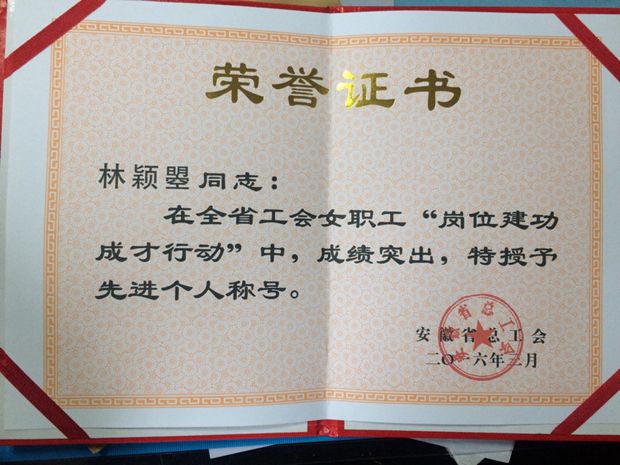 荣誉证书
林颖曌同志：
在全省工会女职工“岗位建功
成才行动”中，成绩突出，特授予
先进个人称号。
安徽省总工会
二〇一六年三月
安徽省总工会